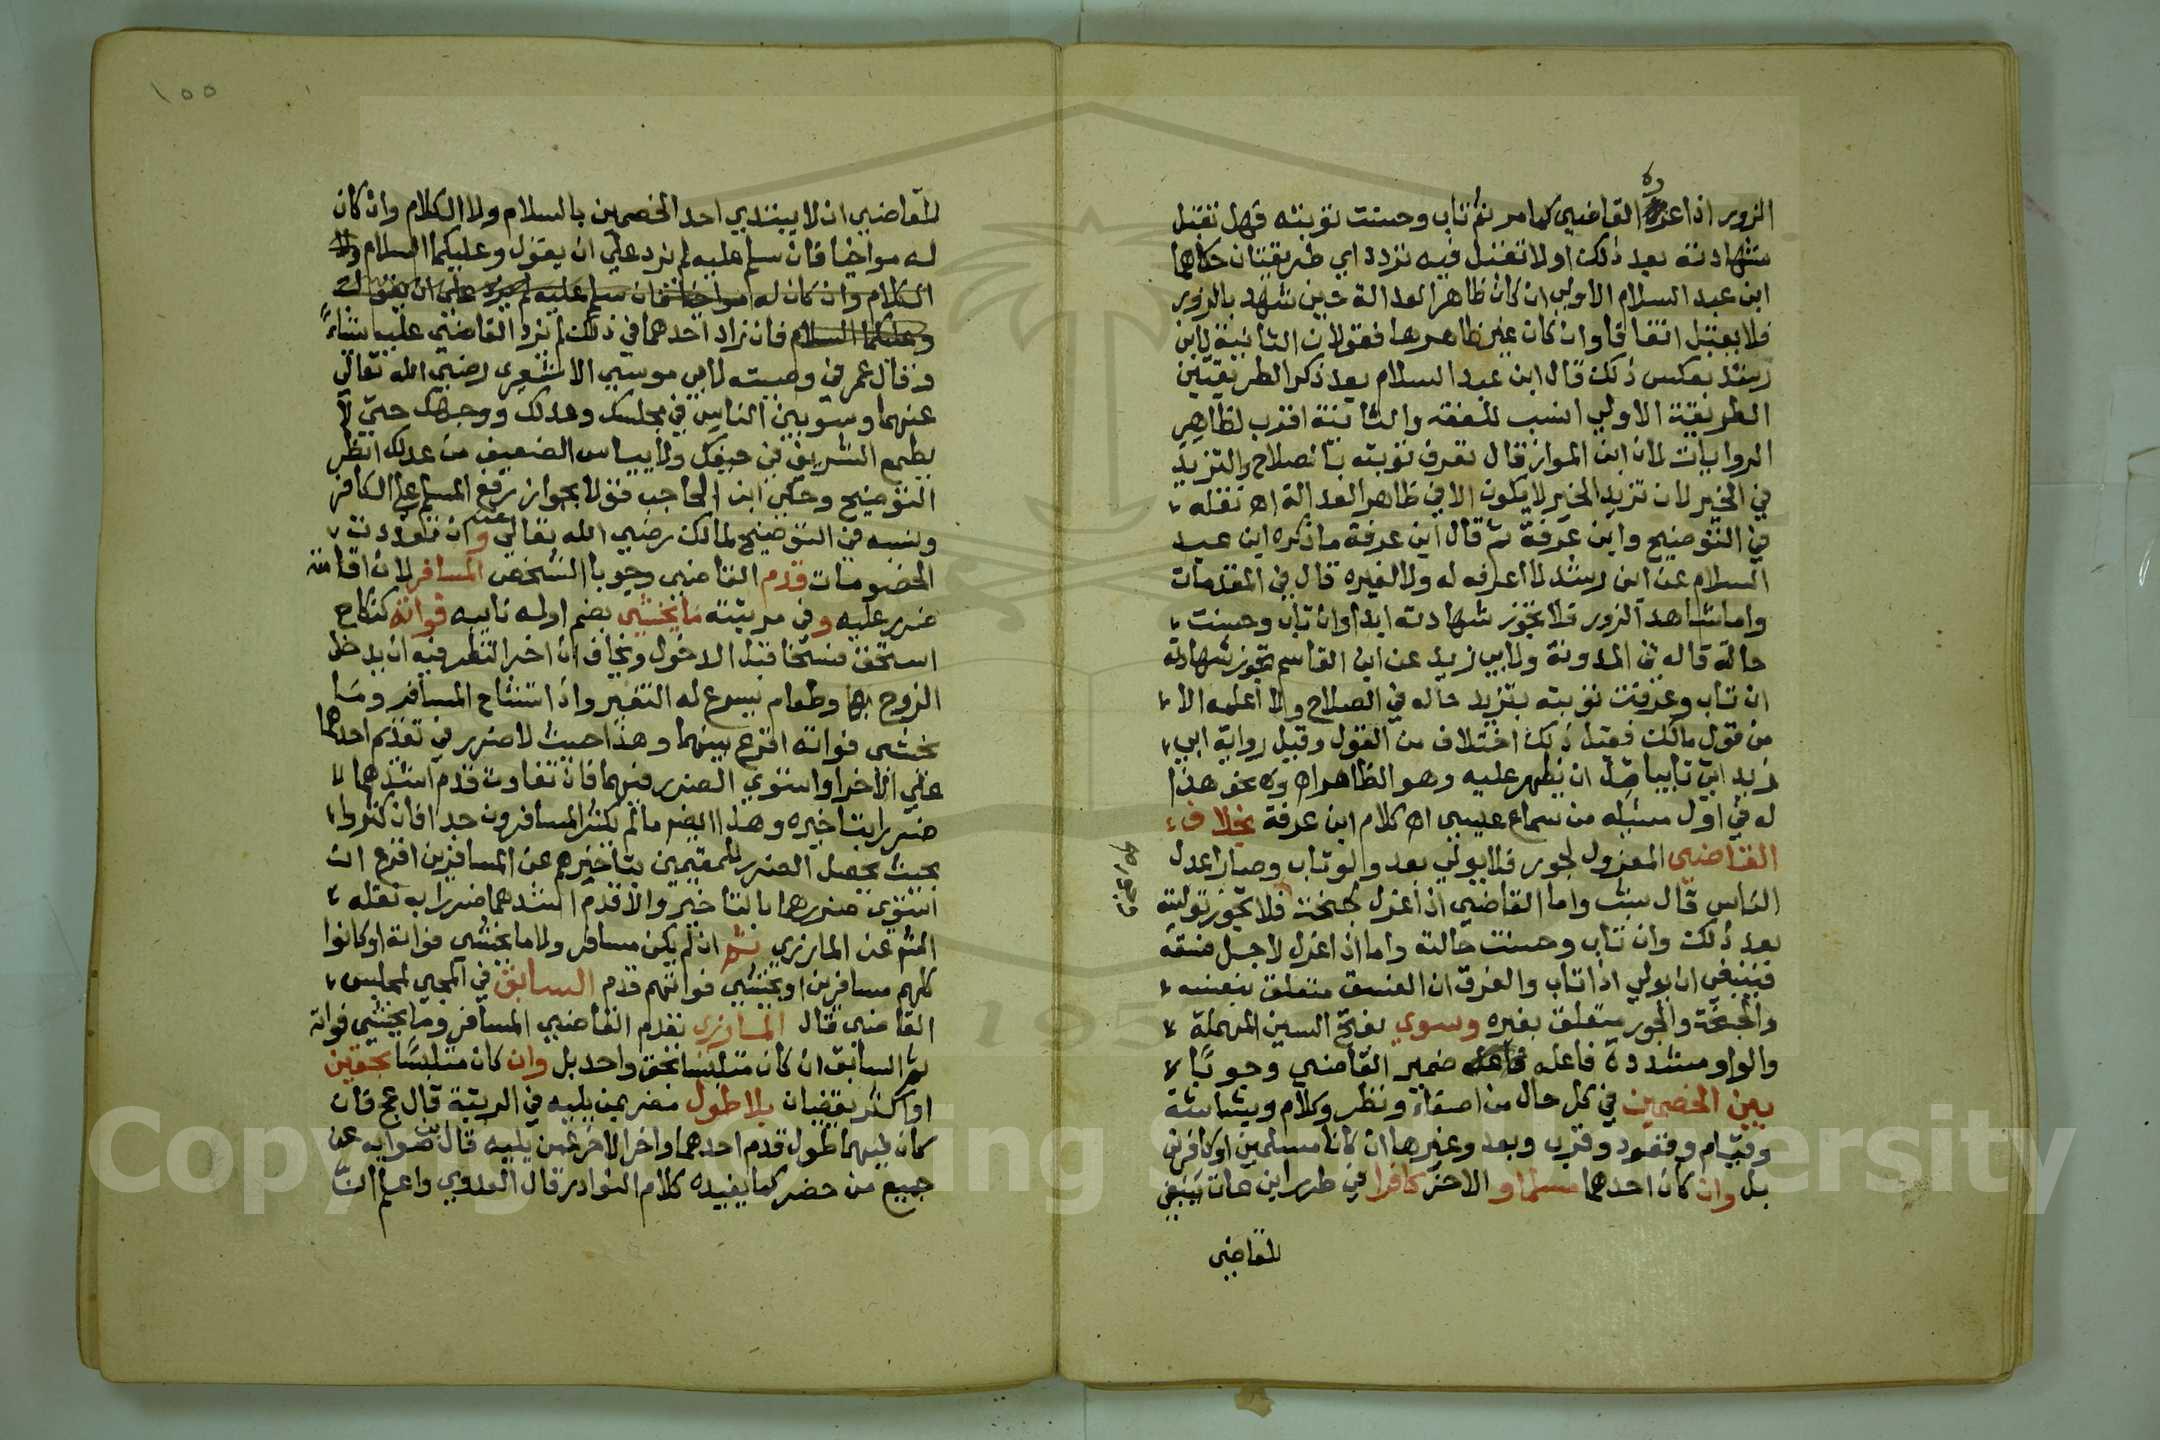 الزور اذا عزره القاضي كما مر ثم تاب وحسنت توبته فهل تقبل
شهادته بعد ذلك او لا تقبل فيه تردد اي طريقتان حكاهما
ابن عبد السلام الاولي ان كان ظاهر العدالة حين شهد بالزور
فلا يقبل اتفاقا وان كان غير ظاهرها فقولان الثانية لابن
رشد بعكس ذلك قال ابن عبد السلام بعد ذكر الطريقتين
الطريقة الاولي انسب للفقه والثانية اقرب لظاهر
الروايات لان ابن المواز قال تعرف توبته بالصلاح والتزيد
في الخير لان تزيد الخير لا يكون الا في ظاهر العدالة اه نقله
في التوضيح وابن عرفة ثم قال ابن عرفة ما ذكره ابن عبد
السلام عن ابن رشد لا اعرفه له ولا لغيره قال في المقدمات
واما شاهد الزور فلا تجوز شهادته ابدا وان تاب وحسنت
حالة قاله في المدونة ولابي زيد عن ابن القاسم تجوز شهادته
ان تاب وعرفت توبته بتزيد حاله في الصلاح ولا اعلمه الا
من قول مالك فقيل ذلك اختلاف من القول وقيل رواية ابي
زيد اتي تايبا قبل ان يظهر عليه وهو الظاهر اه ونحو هذا
له في اول مسئلة من سماع عيسي اه كلام ابن عرفة بخلاف
القاضي المعزول لجور فلا يولي بعد ولو تاب وصار اعدل
الناس قال واما القاضي اذا عزل لجنحة فلا تجوز توليته
بعد ذلك وان تاب وحسنت حالته واما اذا عزل لاجل فسقه
فينبغي ان يولي اذا تاب والفرق ان الفسق متعلق بنفسه
والجنحة والجور متعلق بغيره وسوي بفتح السين المهملة
والواو مشددة فاعله ضمير القاضي وجوبا
بين الخصمين في كل حال من اصغاء ونظر وكلام وبشاشة
وقيام وقعود وقرب وبعد وغيرها ان كانا مسلمين او كافرين
بل وان كان احدهما مسلما و الاخر كافرا في طرر ابن عات ينبغي
للقاضي
١٥٥
للقاضي ان لا يبتدي احد الخصمين بالسلام ولا الكلام وان كان
له مواخيا فان سلم عليه لم يزد علي ان يقول وعليكما السلام ولا
الكلام وان كان له مواخيا فان سلم عليه لم يزد علي ان يقول
وعليكما السلام فان زاد احدهما في ذلك لم يزد القاضي عليه شياء
وقال عمر في وصيته لابي موسي الاشعري رضي الله تعالي
عنهما وسو بين الناس في مجلسك وعدلك ووجهك حتي لا
يطمع الشريف في حيفك ولا ييياس الضعيف من عدلك انظر
التوضيح وحكي ابن الحاجب قولا بجواز رفع المسلم علي الكافر
ونسبه في التوضيح لمالك رضي الله تعالي عنه وان تعددت
الخصومات قدم القاضي وجوبا الشخص المسافر لان اقامته
ضرر عليه وفي مرتبته ما يخشي بضم اوله نايبه فواته كنكاح
استحق فسخا قبل الدخول ويخاف ان اخر النظر فيه ان يدخل
الزوج بها وطعام يسرع له التغير واذا تشاح المسافر وما
يخشي فواته اقرع بينهما وهذا حيث لا ضرر في تقديم احدهما
علي الاخر او استوي الضرر فيهما فان تفاوت قدم اشدهما
ضررا بتاخيره وهذا ايضا ما لم يكثر المسافرون جدا فان كثروا
بحيث يحصل الضرر للمقيمين بتاخيرهم عن المسافرين اقرع ان
استوي ضررهما بالتاخير والا قدم اشدهما ضررا به نقله
الشم عن المازري ثم ان لم يكن مسافر ولا ما يخشي فواته او كانوا
كلهم مسافرين او يخشي فواتهم قدم السابق في المجي لمجلس
القاضي قال المازري تقدم القاضي المسافر وما يخشي فواته
ثم السابق ان كان متلبسا بحق واحد بل وان كان متلبسا بحقين
او اكثر يقضيان بلا طول مضر بمن يليه في الرتبة قال عج فان
كان فيهما طول قدم احدهما واخر الاخر عمن يليه قال بن صوابه عن
جميع من حضر كما يفيده كلام النوادر قال العدوي واعلم ان